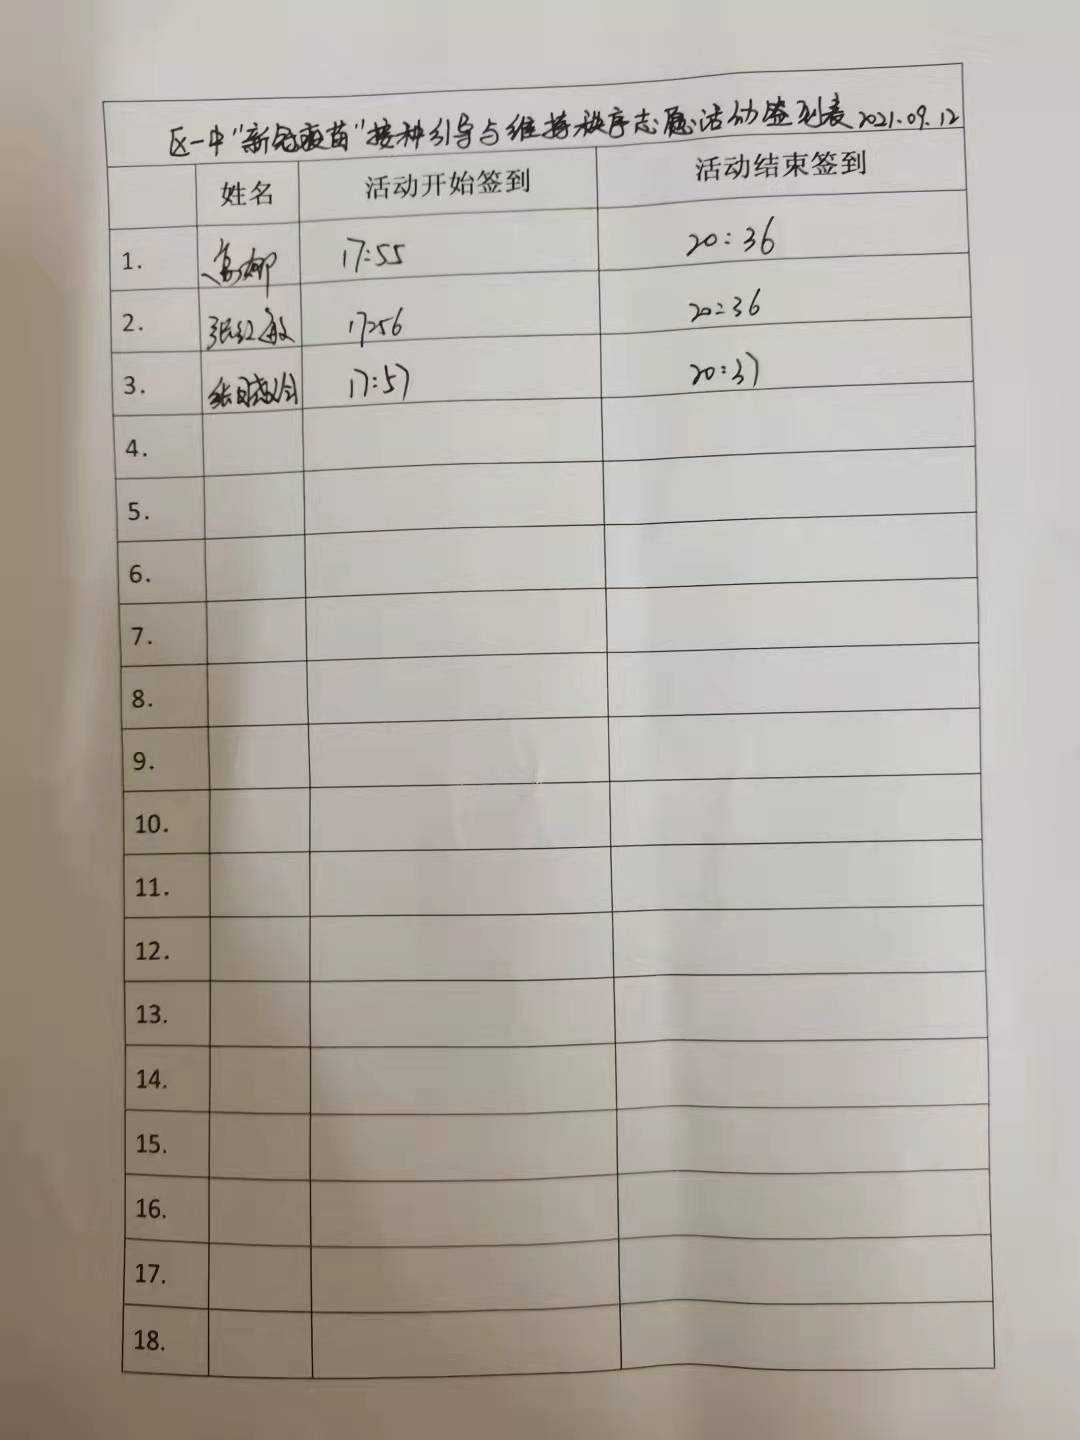 区一中"新冠疫苗"接种引导与维持秩序志愿活动签到表2021.09.12
姓名 活动开始签到 活动结束签到
1. 17:55 20:36
2. 张红敏 17:56 20:36
3. 17:57 20:37
4.
5.
6.
7.
8.
9.
10.
11.
12.
13.
14.
15.
16.
17.
18.